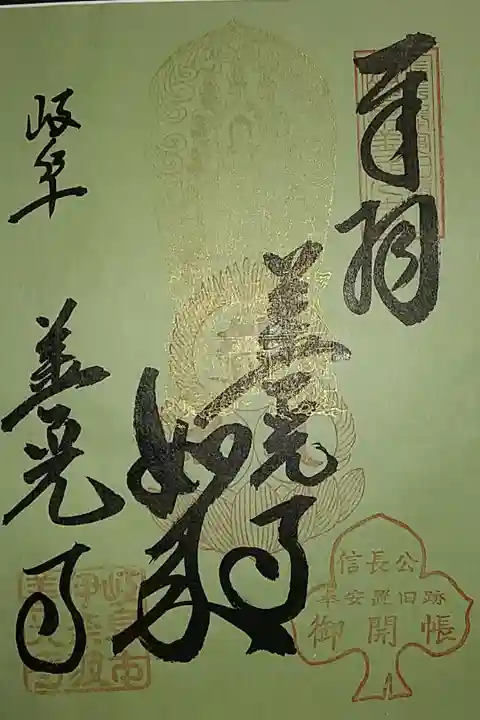 奉拝
善光寺
如来
岐阜
善光寺
信長公
奉安置旧跡
御開帳